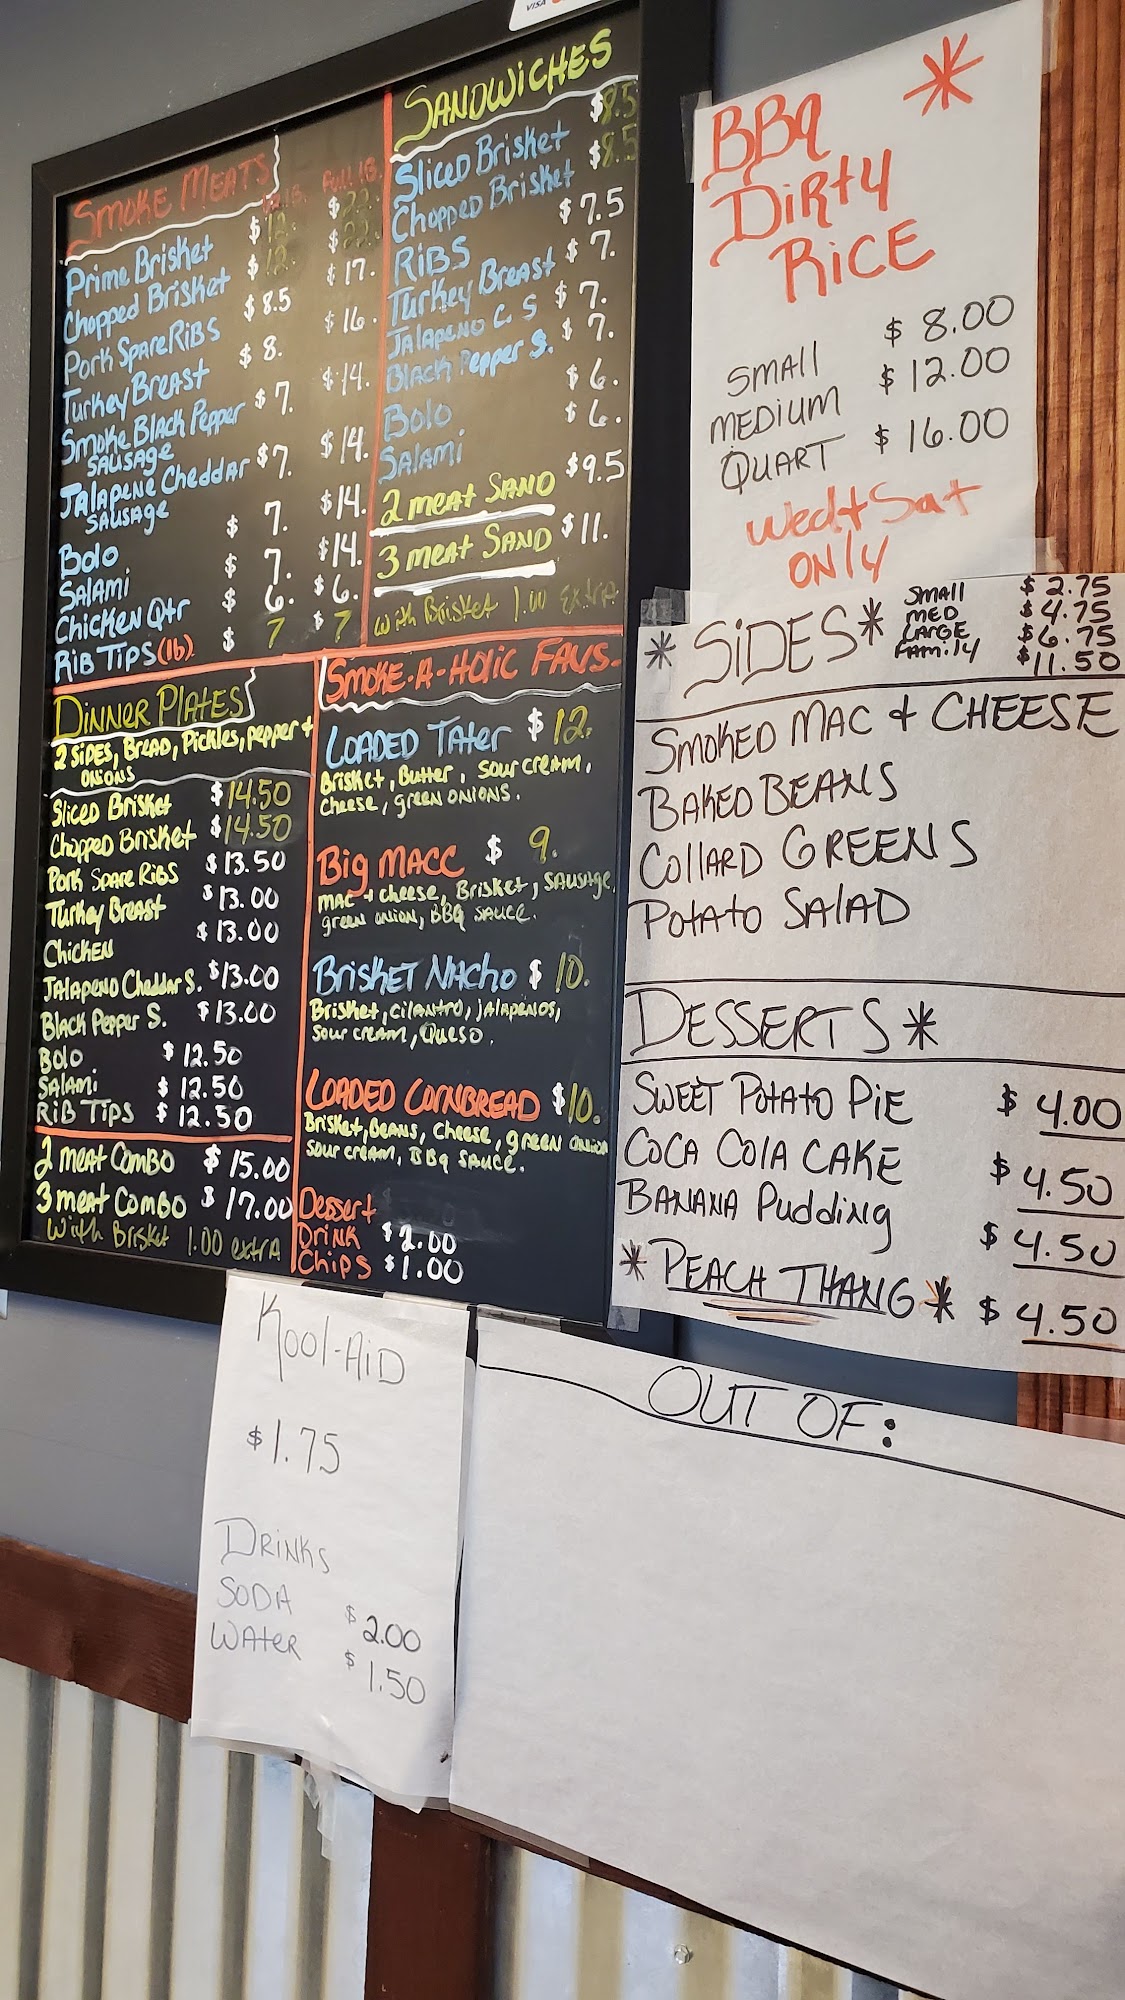 VISA
SMOKE MEATS
FULL lb.
Prime Brisket $12. $22.
Chopped Brisket $12. $22.
Pork Spare Ribs $8.5 $17.
Turkey Breast $8. $16.
Smoke Black Pepper Sausage $7. $14.
Jalapene Cheddar Sausage $7. $14.
Bolo $7. $14.
Salami $7. $14.
Chicken Qtr $6. $6.
Rib Tips (lb) $7 $7
SANDWICHES
Sliced Brisket $8.5
Chopped Brisket $8.5
RIBS $7.5
Turkey Breast $7.
Jalapeno C. S $7.
Black Pepper S. $7.
Bolo $6.
Salami $6.
2 meat SAND $9.5
3 meat SAND $11.
with Brisket 1.00 extra
DINNER PLATES
2 SIDES, BREAD, Pickles, pepper +
ONIONS
Sliced Brisket $14.50
Chopped Brisket $14.50
Pork Spare Ribs $13.50
Turkey Breast $13.00
Chicken $13.00
Jalapeno Cheddar S. $13.00
Black Pepper S. $13.00
Bolo $12.50
Salami $12.50
Rib Tips $12.50
2 meat Combo $15.00
3 meat Combo $17.00
With Brisket 1.00 extra
SMOKE-A-HOLIC FAVS.
LOADED Tater $12.
Brisket, Butter, sour cream,
cheese, green onions.
Big MACC $9.
mac + cheese, Brisket, sausage,
green onion, BBQ sauce.
Brisket Nacho $10.
Brisket, cilantro, jalapenos,
sour cream, Queso.
LOADED CORNBREAD $10.
Brisket, Beans, cheese, green onion
sour cream, BBQ sauce.
Dessert
Drink $2.00
Chips $1.00
BBQ
Dirty
RICE
SMALL $8.00
MEDIUM $12.00
QUART $16.00
Wed + Sat
ONLY
*SIDES*
SMALL $2.75
MED $4.75
LARGE $6.75
Family $11.50
SMOKED MAC + CHEESE
BAKED BEANS
COLLARD GREENS
POTATO SALAD
DESSERTS*
SWEET POTATO PIE $4.00
COCA COLA CAKE $4.50
BANANA Pudding $4.50
*PEACH THANG* $4.50
Kool-AID
$1.75
DRINKS
SODA $2.00
WATER $1.50
OUT OF: